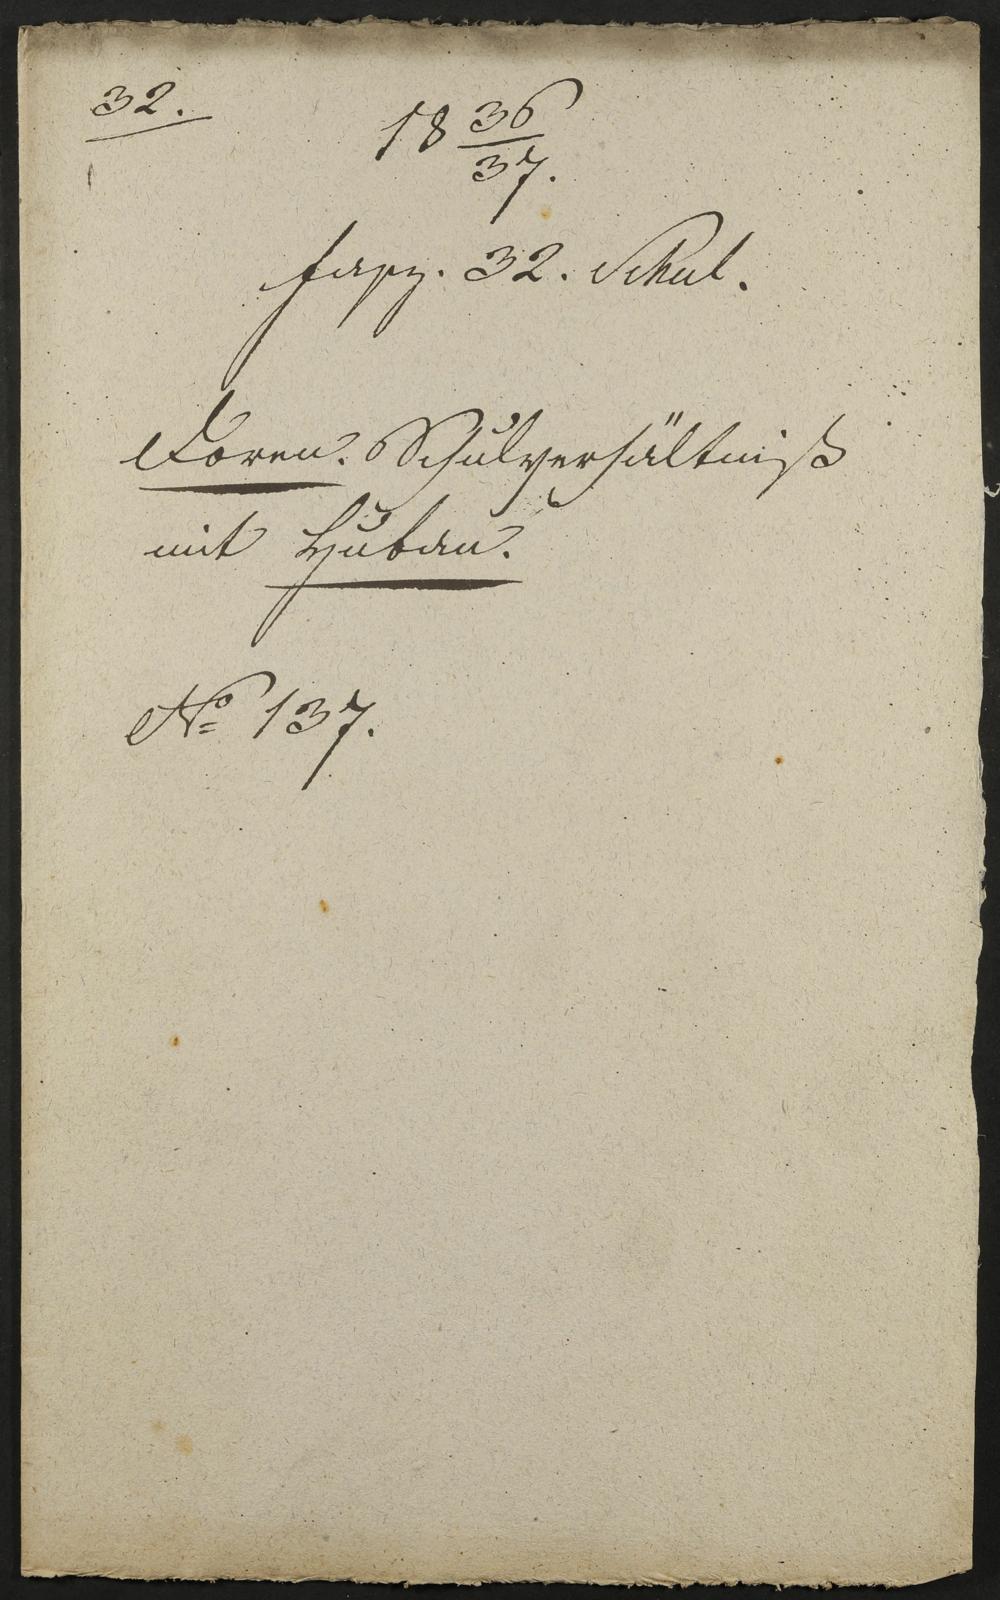 32.
18 36/37.
fasz. 32. Schul.
Koren. Schulverhältniß
mit Huban.
No 137.